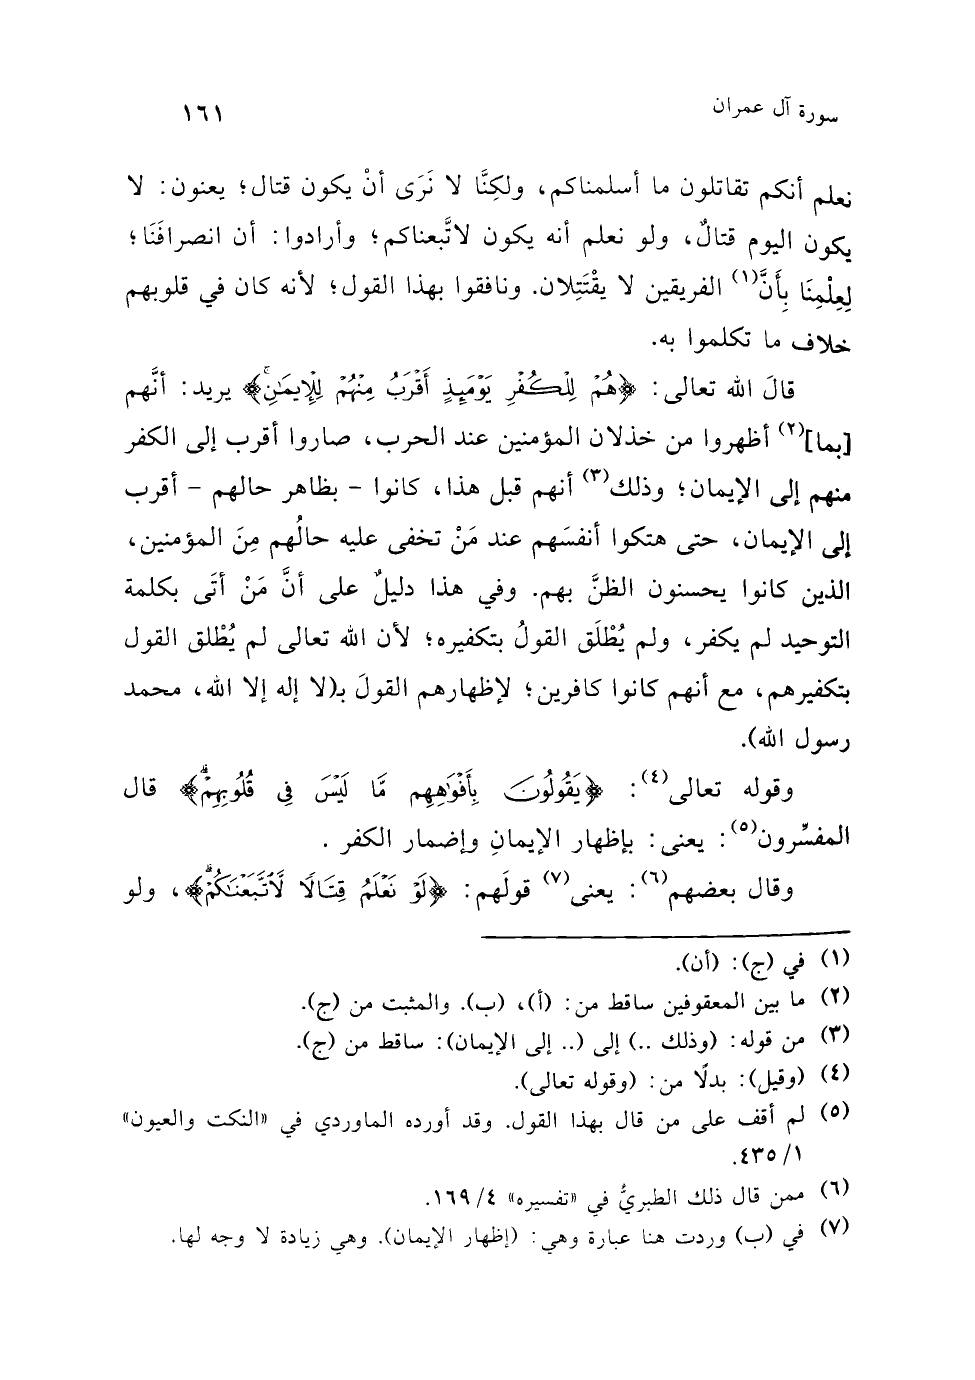 سورة آل عمران ١٦١
نعلم أنكم تقاتلون ما أسلمناكم، ولكِنَّا لا نَرَى أنْ يكون قتال؛ يعنون: لا
يكون اليوم قتالٌ، ولو نعلم أنه يكون لاتَّبعناكم؛ وأرادوا: أن انصرافَنَا؛
لِعِلْمِنَا بِأَنَّ(١) الفريقين لا يقْتَتِلان. ونافقوا بهذا القول؛ لأنه كان في قلوبهم
خلاف ما تكلموا به.
قالَ الله تعالى: ﴿هُمْ لِلْكُفْرِ يَوْمَئِذٍ أَقْرَبُ مِنْهُمْ لِلْإِيمَٰنِۚ﴾ يريد: أنَّهم
[بما](٢) أظهروا من خذلان المؤمنين عند الحرب، صاروا أقرب إلى الكفر
منهم إلى الإيمان؛ وذلك(٣) أنهم قبل هذا، كانوا - بظاهر حالهم - أقرب
إلى الإيمان، حتى هتكوا أنفسَهم عند مَنْ تخفى عليه حالُهم مِنَ المؤمنين،
الذين كانوا يحسنون الظنَّ بهم. وفي هذا دليلٌ على أنَّ مَنْ أتَى بكلمة
التوحيد لم يكفر، ولم يُطْلَق القولُ بتكفيره؛ لأن الله تعالى لم يُطْلق القول
بتكفيرهم، مع أنهم كانوا كافرين؛ لإظهارهم القولَ بـ(لا إله إلا الله، محمد
رسول الله).
وقوله تعالى(٤): ﴿يَقُولُونَ بِأَفْوَٰهِهِم مَّا لَيْسَ فِي قُلُوبِهِمْۗ﴾ قال
المفسِّرون(٥): يعنى: بإظهار الإيمانِ وإضمار الكفر.
وقال بعضهم(٦): يعنى(٧) قولَهم: ﴿لَوْ نَعْلَمُ قِتَالًا لَّاتَّبَعْنَٰكُمْۗ﴾، ولو
(١) في (ج): (أن).
(٢) ما بين المعقوفين ساقط من: (أ)، (ب). والمثبت من (ج).
(٣) من قوله: (وذلك ..) إلى (.. إلى الإيمان): ساقط من (ج).
(٤) (وقيل): بدلًا من: (وقوله تعالى).
(٥) لم أقف على من قال بهذا القول. وقد أورده الماوردي في «النكت والعيون»
١/ ٤٣٥.
(٦) ممن قال ذلك الطبريُّ في «تفسيره» ٤/ ١٦٩.
(٧) في (ب) وردت هنا عبارة وهي: (إظهار الإيمان). وهي زيادة لا وجه لها.